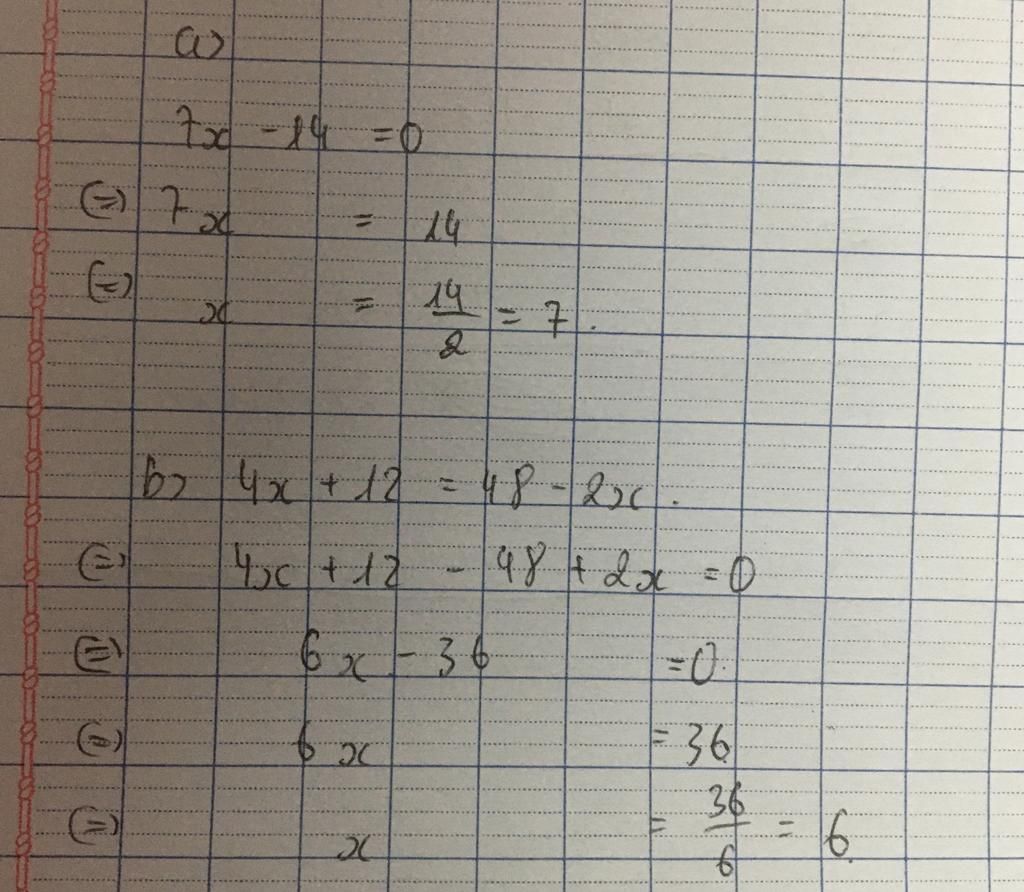 a>
7x - 14 = 0
(=) 7x = 14
(=) x = 14/2 = 7.
b> 4x + 12 = 48 - 2x.
(=) 4x + 12 - 48 + 2x = 0
(=) 6x - 36 = 0
(=) 6x = 36
(=) x = 36/6 = 6